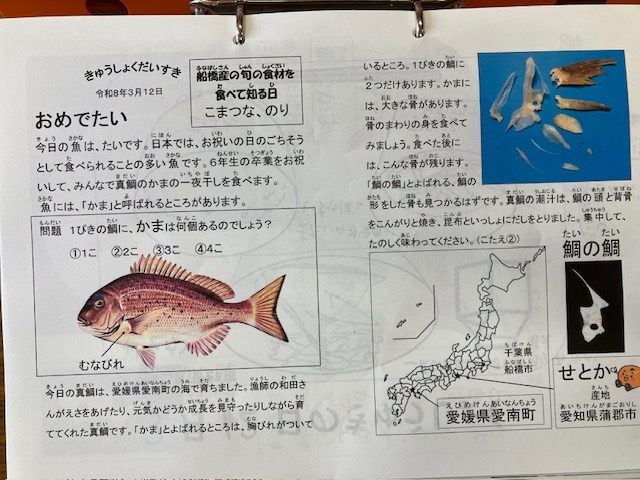 きゅうしょくだいすき
令和8年3月12日
船橋産の旬の食材を
食べて知る日
こまつな、のり
おめでたい
今日の魚は、たいです。日本では、お祝いの日のごちそう
として食べられることの多い魚です。6年生の卒業をお祝
いして、みんなで真鯛のかまの一夜干しを食べます。
魚には、「かま」と呼ばれるところがあります。
問題 1ぴきの鯛に、かまは何個あるのでしょう?
①1こ ②2こ ③3こ ④4こ
むなびれ
今日の真鯛は、愛媛県愛南町の海で育ちました。漁師の和田さ
んがえさをあげたり、元気かどうか成長を見守ったりしながら育
ててくれた真鯛です。「かま」とよばれるところは、胸びれがついて
いるところ。1ぴきの鯛に
2つだけあります。かまに
は、大きな骨があります。
骨のまわりの身を食べて
みましょう。食べた後に
は、こんな骨が残ります。
「鯛の鯛」とよばれる、鯛の
形をした骨も見つかるはずです。真鯛の潮汁は、鯛の頭と背骨
をこんがりと焼き、昆布といっしょにだしをとりました。集中して、
たのしく味わってください。(こたえ②)
鯛の鯛
千葉県
船橋市
愛媛県愛南町
せとかは
産地
愛知県蒲郡市